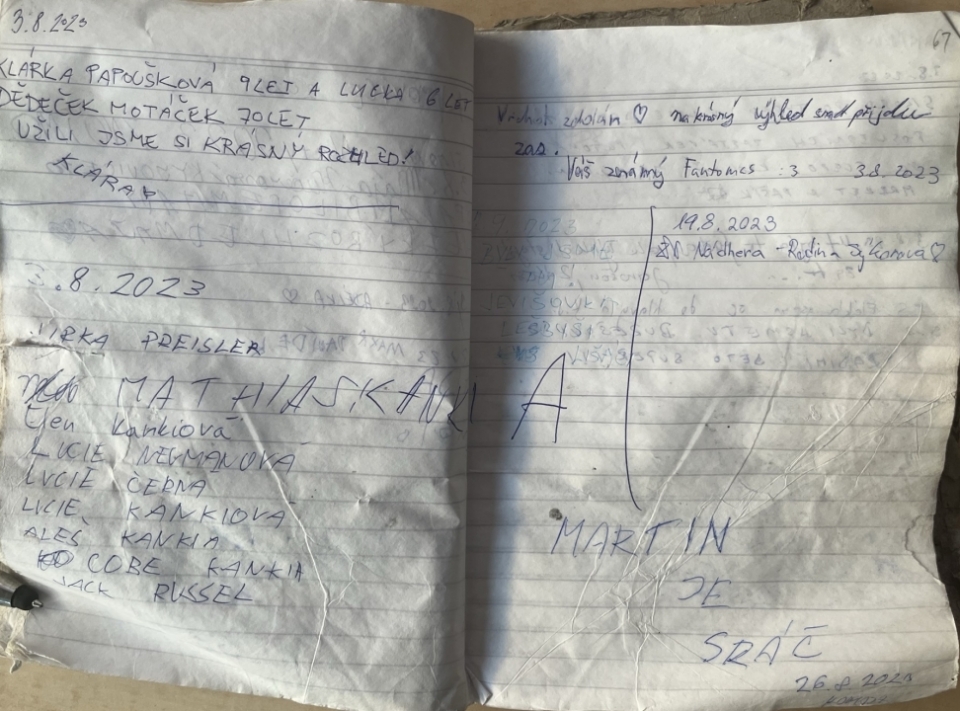 3.8.2023
KLÁRKA PAPOUŠKOVÁ 9LET A LUCKA 6 LET
DĚDEČEK MOTÁČEK 70LET
UŽILI JSME SI KRÁSNÝ ROZHLED!
KLÁRA
3.8.2023
JIRKA PREISLER
MATHIAS KANKIA
Ejen Kankiová
LUCIE NEUMANOVÁ
LUCIE ČERNÁ
LUCIE KANKIOVÁ
ALEŠ KANKIA
COBE KANKIA
JACK RUSSEL
67
zdolán ♡ nakrásný výhled snad přijdu
zas.
Váš známý Fantomes :3 3.8.2023
19.8.2023
Nádhera - Rodina Sýkorova ♡
MARTIN
JE
SRÁČ
26.8.2023